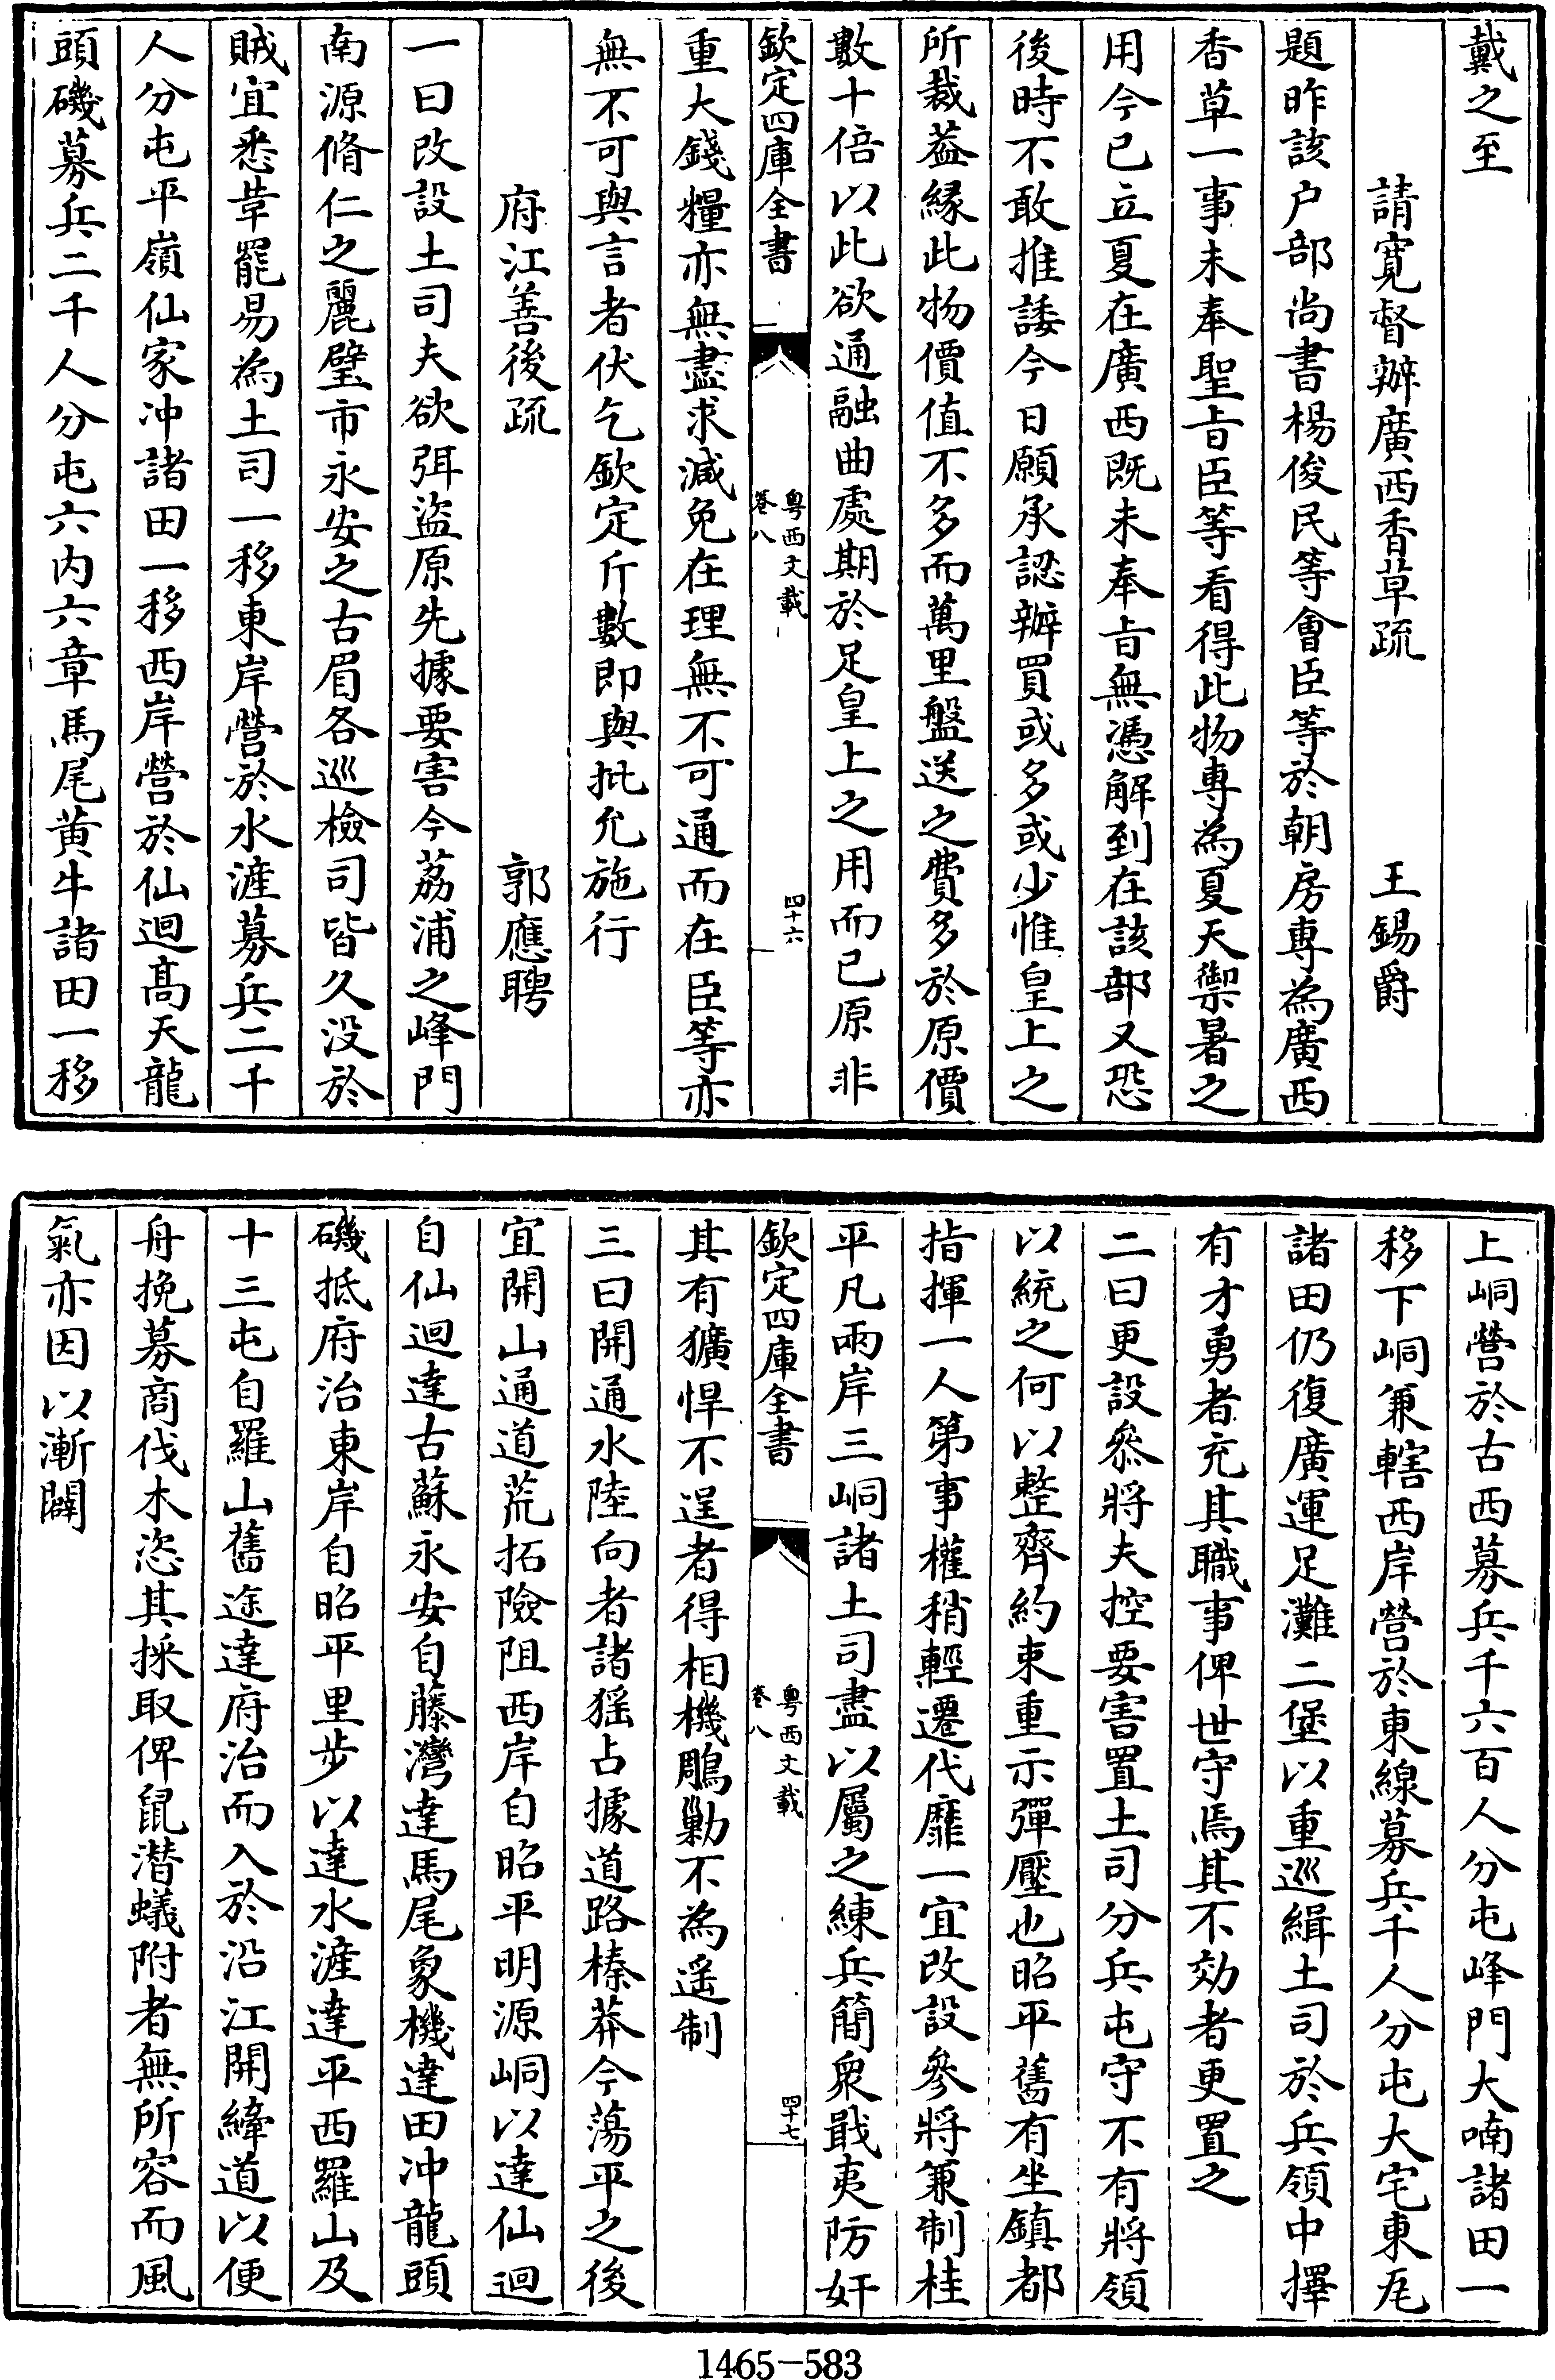 戴之至
請寬督辦廣西香草疏 王錫爵
題昨該户部尚書楊俊民等㑹臣等於朝房專為廣西
香草一事未奉聖㫖臣等看得此物專為夏天禦暑之
用今已立夏在廣西既未奉㫖無憑解到在該部又恐
後時不敢推諉今日願承認辦買或多或少惟皇上之
所裁葢緣此物價值不多而萬里盤送之費多於原價
數十倍以此欲通融曲處期於足皇上之用而已原非
欽定四庫全書 粤西文載 卷八 四十六
重大錢糧亦無盡求減免在理無不可通而在臣等亦
無不可與言者伏乞欽定斤數即與批允施行
府江善後疏 郭應聘
一曰改設土司夫欲弭盜原先據要害今荔浦之峰門
南源脩仁之麗璧市永安之古眉各巡檢司皆久没於
賊宜悉革罷易為土司一移東岸營於水滻募兵二千
人分屯平嶺仙家冲諸田一移西岸營於仙迴髙天龍
頭磯募兵二千人分屯六内六章馬尾黄牛諸田一移
上峒營於古西募兵千六百人分屯峰門大喃諸田一
移下峒兼轄西岸營於東線募兵千人分屯大宅東厐
諸田仍復廣運足灘二堡以重巡緝土司於兵領中擇
有才勇者充其職事俾世守焉其不効者更置之
二曰更設叅將夫控要害置土司分兵屯守不有將領
以統之何以整齊約束重示彈壓也昭平舊有坐鎮都
指揮一人第事權稍輕遷代靡一宜改設參將兼制桂
平凡兩岸三峒諸土司盡以屬之練兵簡衆戢夷防奸
欽定四庫全書 粤西文載 卷八 四十七
其有獷悍不逞者得相機鵰勦不為遥制
三曰開通水陸向者諸猺占據道路榛莽今蕩平之後
宜開山通道荒拓險阻西岸自昭平明源峒以達仙迴
自仙迴達古蘇永安自藤灣達馬尾象機達田冲龍頭
磯抵府治東岸自昭平里步以達水滻達平西羅山及
十三屯自羅山舊途達府治而入於沿江開縴道以便
舟挽募商伐木恣其採取俾鼠潜蟻附者無所容而風
氣亦因以漸闢
1465-583